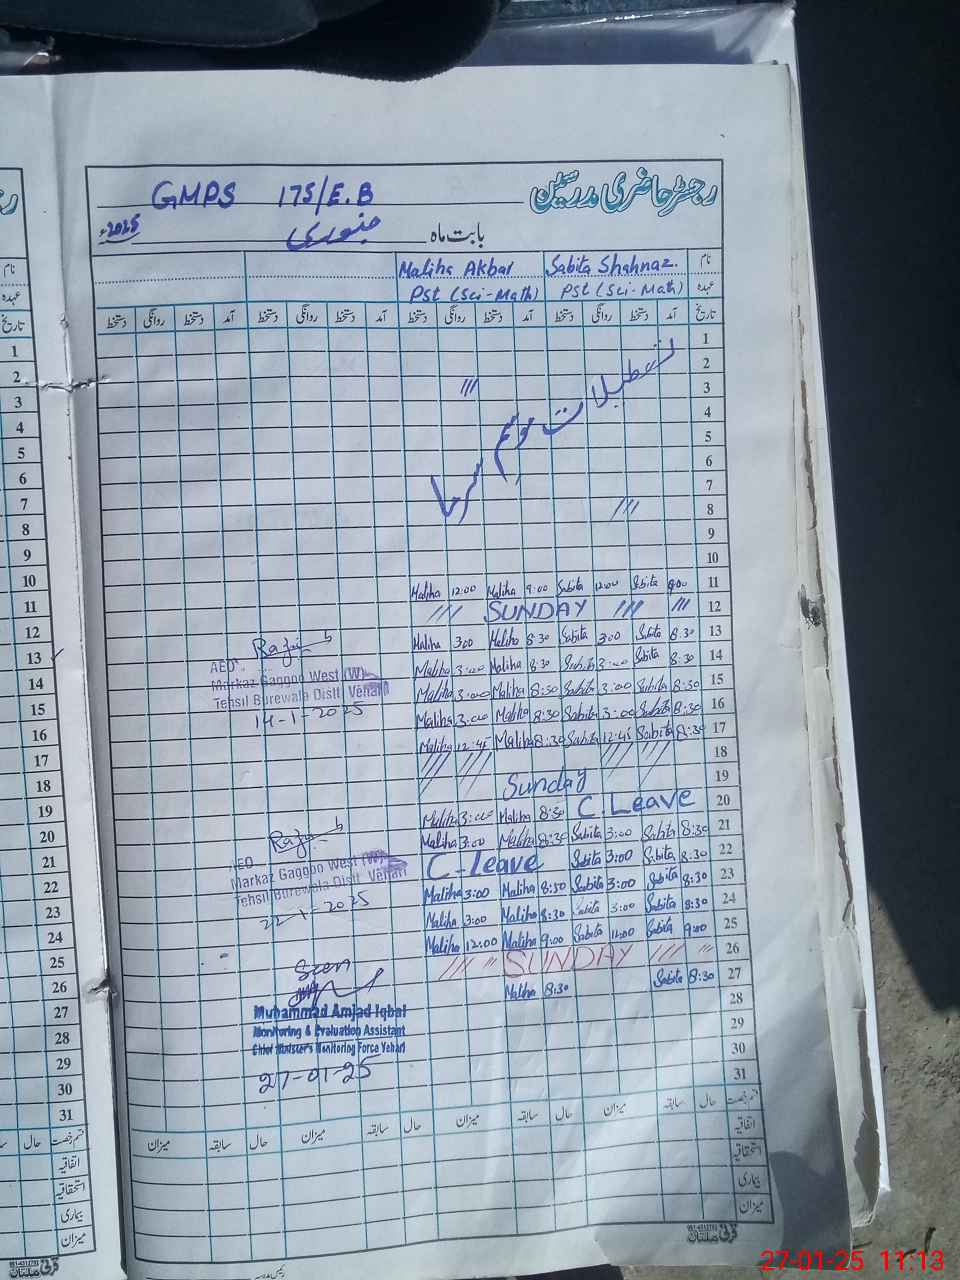 رجسٹر حاضری مدرسین
GMPS 175/E.B
بابت ماہ جنوری 2025ء
نام Sabita Shahnaz. Maliha Akbar
عہدہ PST (Sci-Math) PST (Sci-Math)
تاریخ آمد دستخط روانگی دستخط آمد دستخط روانگی دستخط آمد دستخط روانگی دستخط آمد دستخط روانگی دستخط
1
2
3
4
5
6
7
8
9
10
تعطیلات موسم سرما
Maliha 12:00 Maliha 9:00 Sabita 12:00 Sabita 9:00 11
SUNDAY 12
Maliha 3:00 Maliha 8:30 Sabita 3:00 Sabita 8:30 13
Maliha 3:00 Maliha 8:30 Sabita 3:00 Sabita 8:30 14
Maliha 3:00 Maliha 8:30 Sabita 3:00 Sabita 8:30 15
Maliha 3:00 Maliha 8:30 Sabita 3:00 Sabita 8:30 16
Maliha 12:45 Maliha 8:30 Sabita 12:45 Sabita 8:30 17
18
Sunday 19
Maliha 3:00 Maliha 8:30 C.Leave 20
Maliha 3:00 Maliha 8:30 Sabita 3:00 Sabita 8:30 21
C-Leave Sabita 3:00 Sabita 8:30 22
Maliha 3:00 Maliha 8:30 Sabita 3:00 Sabita 8:30 23
Maliha 3:00 Maliha 8:30 Sabita 3:00 Sabita 8:30 24
Maliha 12:00 Maliha 9:00 Sabita 12:00 Sabita 9:00 25
SUNDAY 26
Maliha 8:30 Sabita 8:30 27
28
29
30
31
AEO
Markaz Gaggoo West (W)
Tehsil Burewala Distt Vehari
14-1-2025
AEO
Markaz Gaggoo West (W)
Tehsil Burewala Distt Vehari
22-1-2025
Seen
Muhammad Amjad Iqbal
Monitoring & Evaluation Assistant
Chief Minister's Monitoring Force Vehari
27-01-25
قسم رخصت حال سابقہ میزان حال سابقہ میزان حال سابقہ میزان حال سابقہ میزان
اتفاقیہ
استحقاقیہ
بیماری
میزان
رئیس مدرسہ
تاریخ
1
2
3
4
5
6
7
8
9
10
11
12
13
14
15
16
17
18
19
20
21
22
23
24
25
26
27
28
29
30
31
قسم رخصت حال
اتفاقیہ
استحقاقیہ
بیماری
میزان
27-01-25 11:13